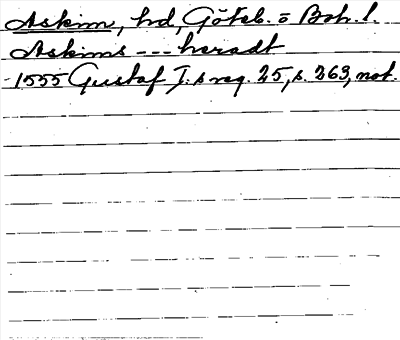 Askim, hd, Göteb. o Boh. l.
Askims --- heradt
1555 Gustaf I.s reg. 25, s. 263, not.